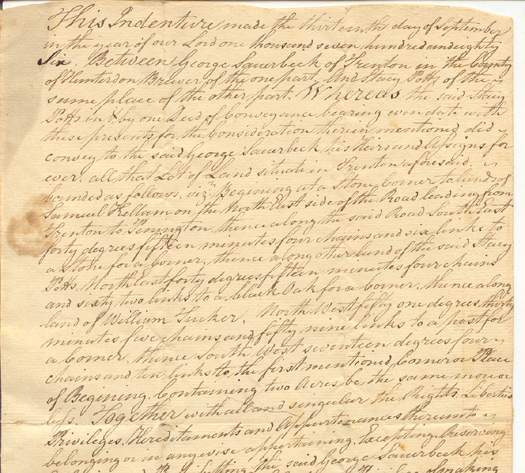 This Indenture made the thirteenth day of September
in the year of our Lord one thousand seven hundred and eighty
Six. Between George Sauerbeck of Trenton in the County
of Hunterdon Brewer of the one part, And Stacy Potts of the
same place of the other part. Whereas the said Stacy
Potts in & by one Deed of Conveyance bearing even date with
these presents for the Consideration therein mentioned did
convey to the said George Sauerbeck his heirs and assigns for
ever, all that Lot of Land situate in Trenton aforesaid, is
bounded as follows, viz. Begining at a Stone corner to land of
Samuel Kellum on the North East side of the Road leading from
Trenton to thence along the said Road South East
forty degrees fifteen minutes four chains and six links to
a Stone for a corner, thence along other land of the said Stacy
Potts, North East forty degrees fifteen minutes four chains
and sixty two links to a black Oak for a corner, thence along
land of William Tucker, North West fifty one degrees thirty
minutes five chains and fifty nine links to a post for
a Corner, thence South West seventeen degrees four
chains and ten links to the first mentioned Corner or Place
of Begining, Containing two Acres, be the same more or
less, Together with all and singular the Rights Liberties
Priviledges, Hereditaments and Appurtenances thereunto
belonging or in any wise appertaining, Excepting & reserving
the said George Sauerbeck his
making